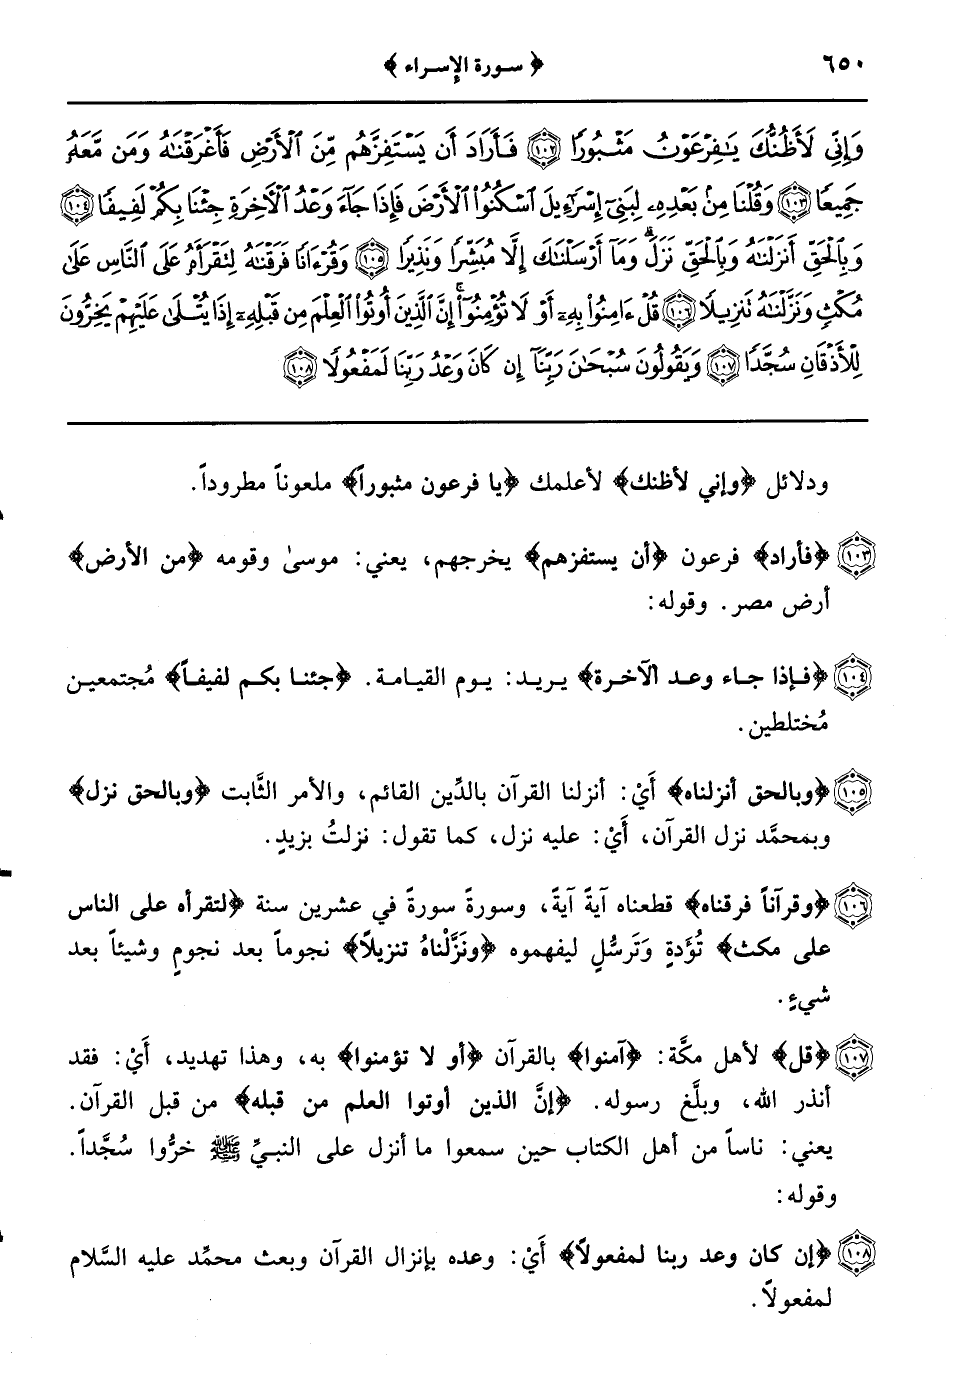 ٦٥٠ ﴿ سورة الإسراء ﴾
وَإِنِّي لَأَظُنُّكَ يَٰفِرْعَوْنُ مَثْبُورًا ﴿١٠٢﴾ فَأَرَادَ أَن يَسْتَفِزَّهُم مِّنَ ٱلْأَرْضِ فَأَغْرَقْنَٰهُ وَمَن مَّعَهُۥ
جَمِيعًا ﴿١٠٣﴾ وَقُلْنَا مِنۢ بَعْدِهِۦ لِبَنِيٓ إِسْرَٰٓءِيلَ ٱسْكُنُوا۟ ٱلْأَرْضَ فَإِذَا جَآءَ وَعْدُ ٱلْأٓخِرَةِ جِئْنَا بِكُمْ لَفِيفًا ﴿١٠٤﴾
وَبِٱلْحَقِّ أَنزَلْنَٰهُ وَبِٱلْحَقِّ نَزَلَ ۗ وَمَآ أَرْسَلْنَٰكَ إِلَّا مُبَشِّرًا وَنَذِيرًا ﴿١٠٥﴾ وَقُرْءَانًا فَرَقْنَٰهُ لِتَقْرَأَهُۥ عَلَى ٱلنَّاسِ عَلَىٰ
مُكْثٍ وَنَزَّلْنَٰهُ تَنزِيلًا ﴿١٠٦﴾ قُلْ ءَامِنُوا۟ بِهِۦٓ أَوْ لَا تُؤْمِنُوٓا۟ ۚ إِنَّ ٱلَّذِينَ أُوتُوا۟ ٱلْعِلْمَ مِن قَبْلِهِۦٓ إِذَا يُتْلَىٰ عَلَيْهِمْ يَخِرُّونَ
لِلْأَذْقَانِ سُجَّدًا ﴿١٠٧﴾ وَيَقُولُونَ سُبْحَٰنَ رَبِّنَآ إِن كَانَ وَعْدُ رَبِّنَا لَمَفْعُولًا ﴿١٠٨﴾
ودلائل ﴿وإني لأظنك﴾ لأعلمك ﴿يا فرعون مثبوراً﴾ ملعوناً مطروداً.
١٠٣ ﴿فأراد﴾ فرعون ﴿أن يستفزهم﴾ يخرجهم، يعني: موسىٰ وقومه ﴿من الأرض﴾
أرض مصر. وقوله:
١٠٤ ﴿فإذا جاء وعد الآخرة﴾ يريد: يوم القيامة. ﴿جئنا بكم لفيفاً﴾ مُجتمعين
مُختلطين.
١٠٥ ﴿وبالحق أنزلناه﴾ أَيْ: أنزلنا القرآن بالدِّين القائم، والأمر الثَّابت ﴿وبالحق نزل﴾
وبمحمَّد نزل القرآن، أَيْ: عليه نزل، كما تقول: نزلتُ بزيدٍ.
١٠٦ ﴿وقرآناً فرقناه﴾ قطعناه آيةً آيةً، وسورةً سورةً في عشرين سنة ﴿لتقرأه على الناس
على مكث﴾ تُؤَدةٍ وَتَرسُّلٍ ليفهموه ﴿ونَزَّلْناهُ تنزيلاً﴾ نجوماً بعد نجومٍ وشيئاً بعد
شيءٍ.
١٠٧ ﴿قل﴾ لأهل مكَّة: ﴿آمنوا﴾ بالقرآن ﴿أو لا تؤمنوا﴾ به، وهذا تهديد، أَيْ: فقد
أنذر الله، وبلَّغ رسوله. ﴿إنَّ الذين أوتوا العلم من قبله﴾ من قبل القرآن.
يعني: ناساً من أهل الكتاب حين سمعوا ما أنزل على النبيِّ ﷺ خرُّوا سُجَّداً.
وقوله:
١٠٨ ﴿إن كان وعد ربنا لمفعولاً﴾ أَيْ: وعده بإنزال القرآن وبعث محمَّد عليه السَّلام
لمفعولاً.